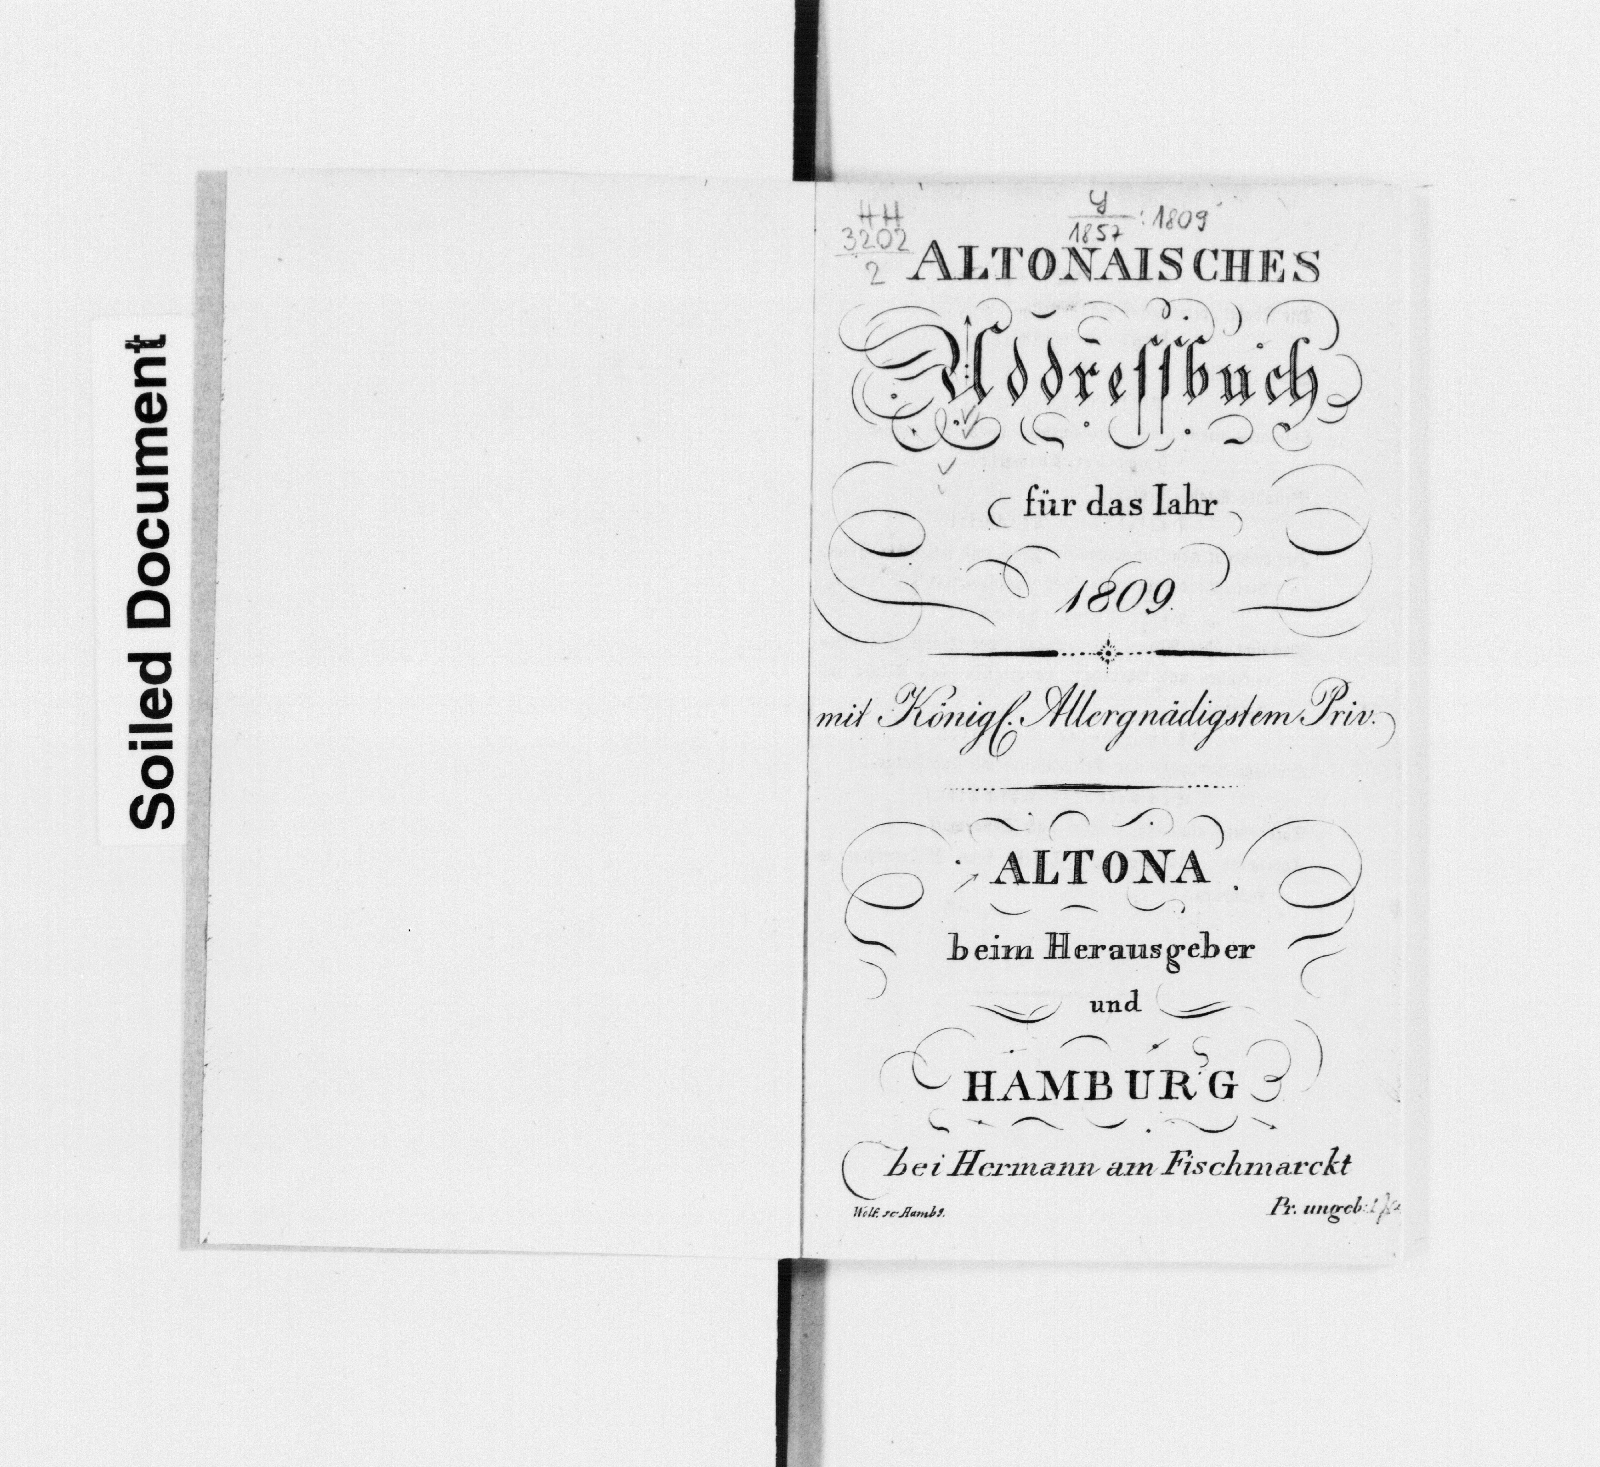 Soiled Document
HH
3202
2
y
1857 : 1809
ALTONAISCHES
Addressbuch
für das Iahr
1809.
mit Königl. Allergnädigstem Priv.
ALTONA
beim Herausgeber
und
HAMBURG
bei Hermann am Fischmarckt
Wolf. sc. Hambg.
Pr. ungeb: